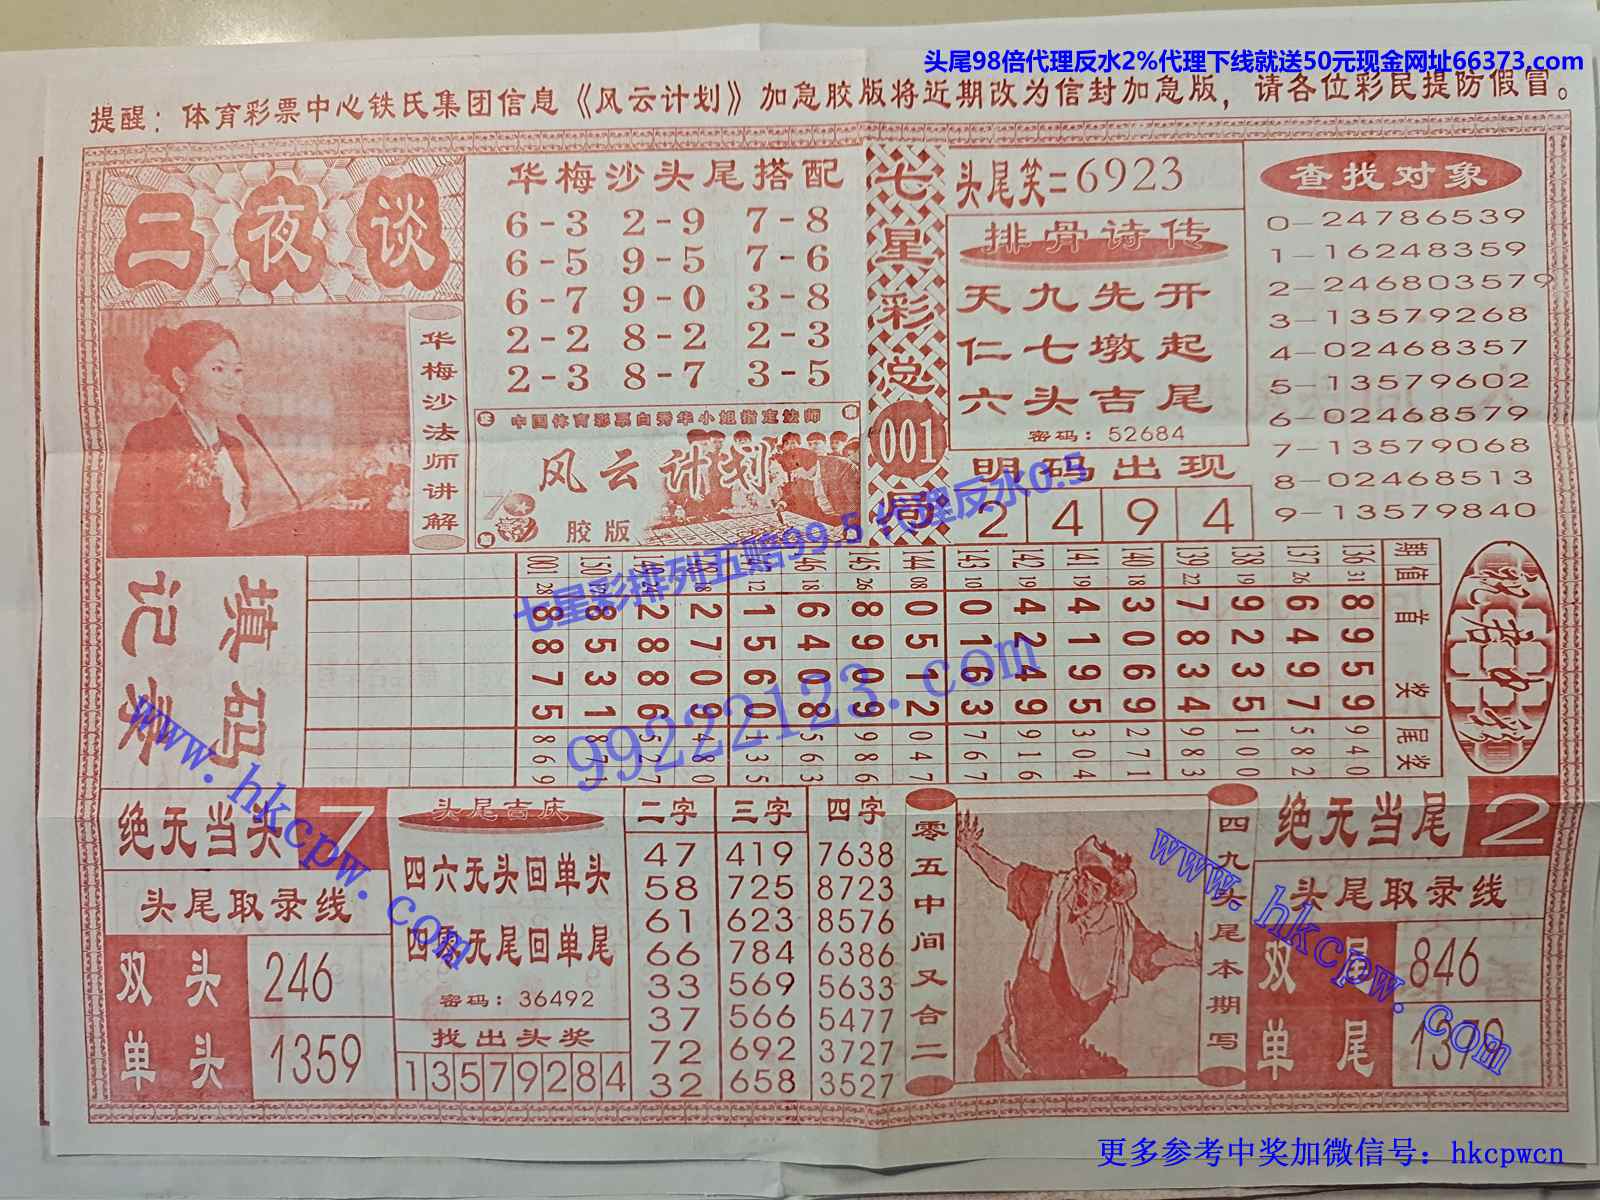 头尾98倍代理反水2%代理下线就送50元现金网址66373.com
提醒：体育彩票中心铁氏集团信息《风云计划》加急胶版将近期改为信封加急版，请各位彩民提防假冒。
二夜谈
华梅沙法师讲解
华梅沙头尾搭配
6-3 2-9 7-8
6-5 9-5 7-6
6-7 9-0 3-8
2-2 8-2 2-3
2-3 8-7 3-5
中国体育彩票白秀华小姐指定法师
风云计划
胶版
七星彩总001局
头尾笑=6923
排骨诗传
天九先开
仁七墩起
六头吉尾
密码：52684
明码出现
2 4 9 4
查找对象
0-24786539
1-16248359
2-246803579
3-13579268
4-02468357
5-13579602
6-02468579
7-13579068
8-02468513
9-13579840
七星彩排列五赔99.5 代理反水0.5
99222123.com
填码记录
期值 首奖 尾奖
136 31 8959 940
137 26 6497 582
138 19 9235 100
139 22 7834 983
140 18 3069 271
141 19 4195 304
142 10 4249 916
143 10 0163 767
144 08 0512 047
145 26 8909 986
146 18 6408 563
12 1560 135
8 2709 480
2886 527
150 8531 871
001 28 8875 869
祝君中彩
绝无当头 7
头尾取录线
双头 246
单头 1359
头尾吉庆
四六无头回单头
四零无尾回单尾
密码：36492
找出头奖
1 3 5 7 9 2 8 4
二字 三字 四字
47 419 7638
58 725 8723
61 623 8576
66 784 6386
33 569 5633
37 566 5477
72 692 3727
32 658 3527
零五中间又合二
四九头尾本期写
绝无当尾 2
头尾取录线
双尾 846
单尾 1379
www.hkcpw.com
www.hkcpw.com
更多参考中奖加微信号：hkcpwcn